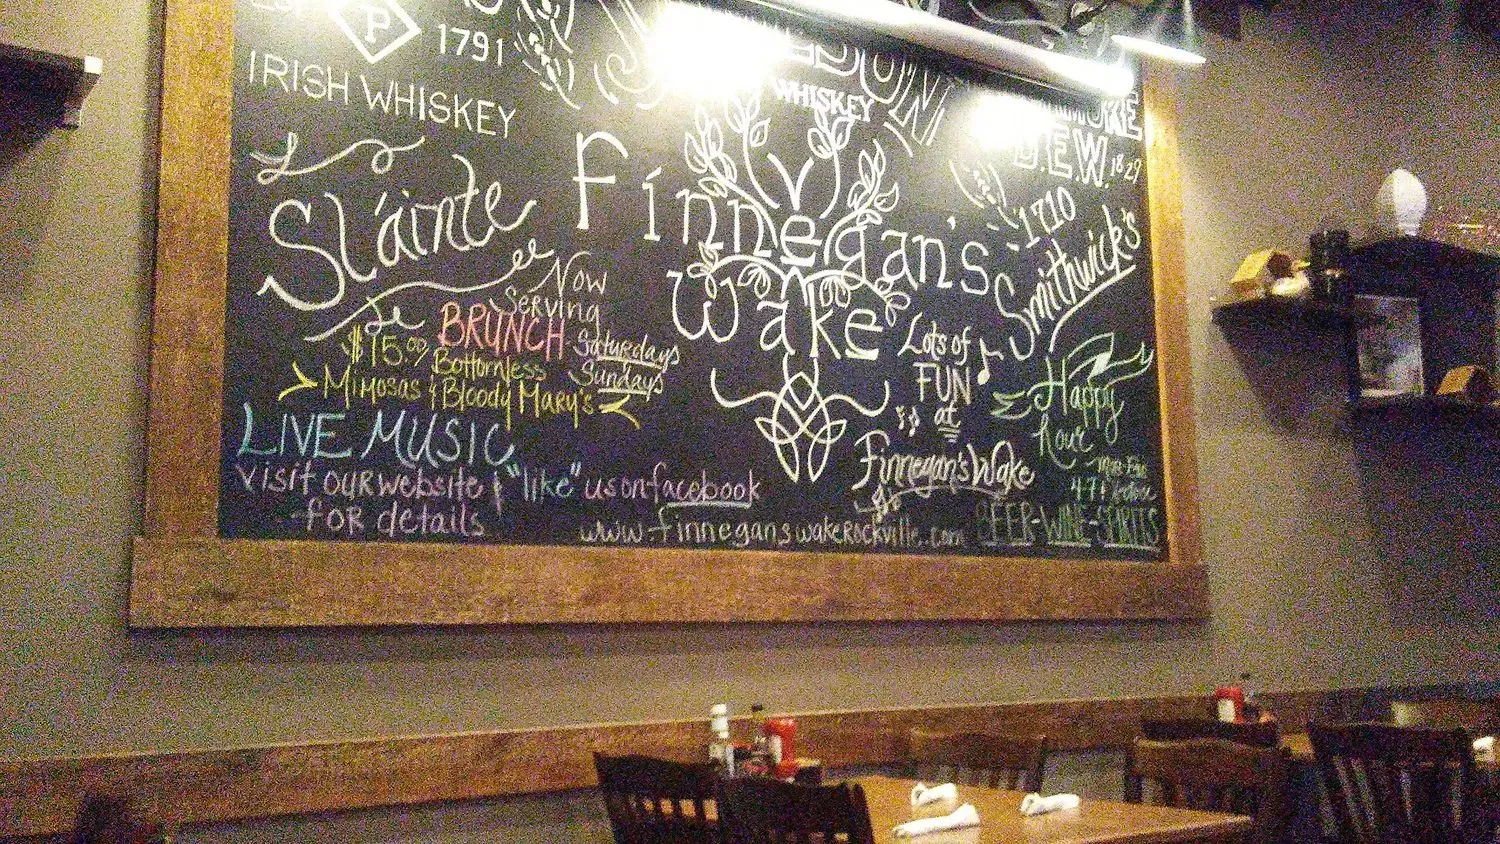 P
1791
IRISH WHISKEY
WHISKEY
D.E.W. 1829
Sláinte
Fínnegan's
Wake
1710
Smithwick's
Now
Serving
BRUNCH
Saturdays
Sundays
$15.00
Bottomless
Mimosas & Bloody Mary's
LIVE MUSIC
visit our website & "like" us on facebook
for details
www.finneganswakerockville.com
Lots of
FUN
at
Finnegan's Wake
Happy
hour
4-7
BEER-WINE-SPIRITS